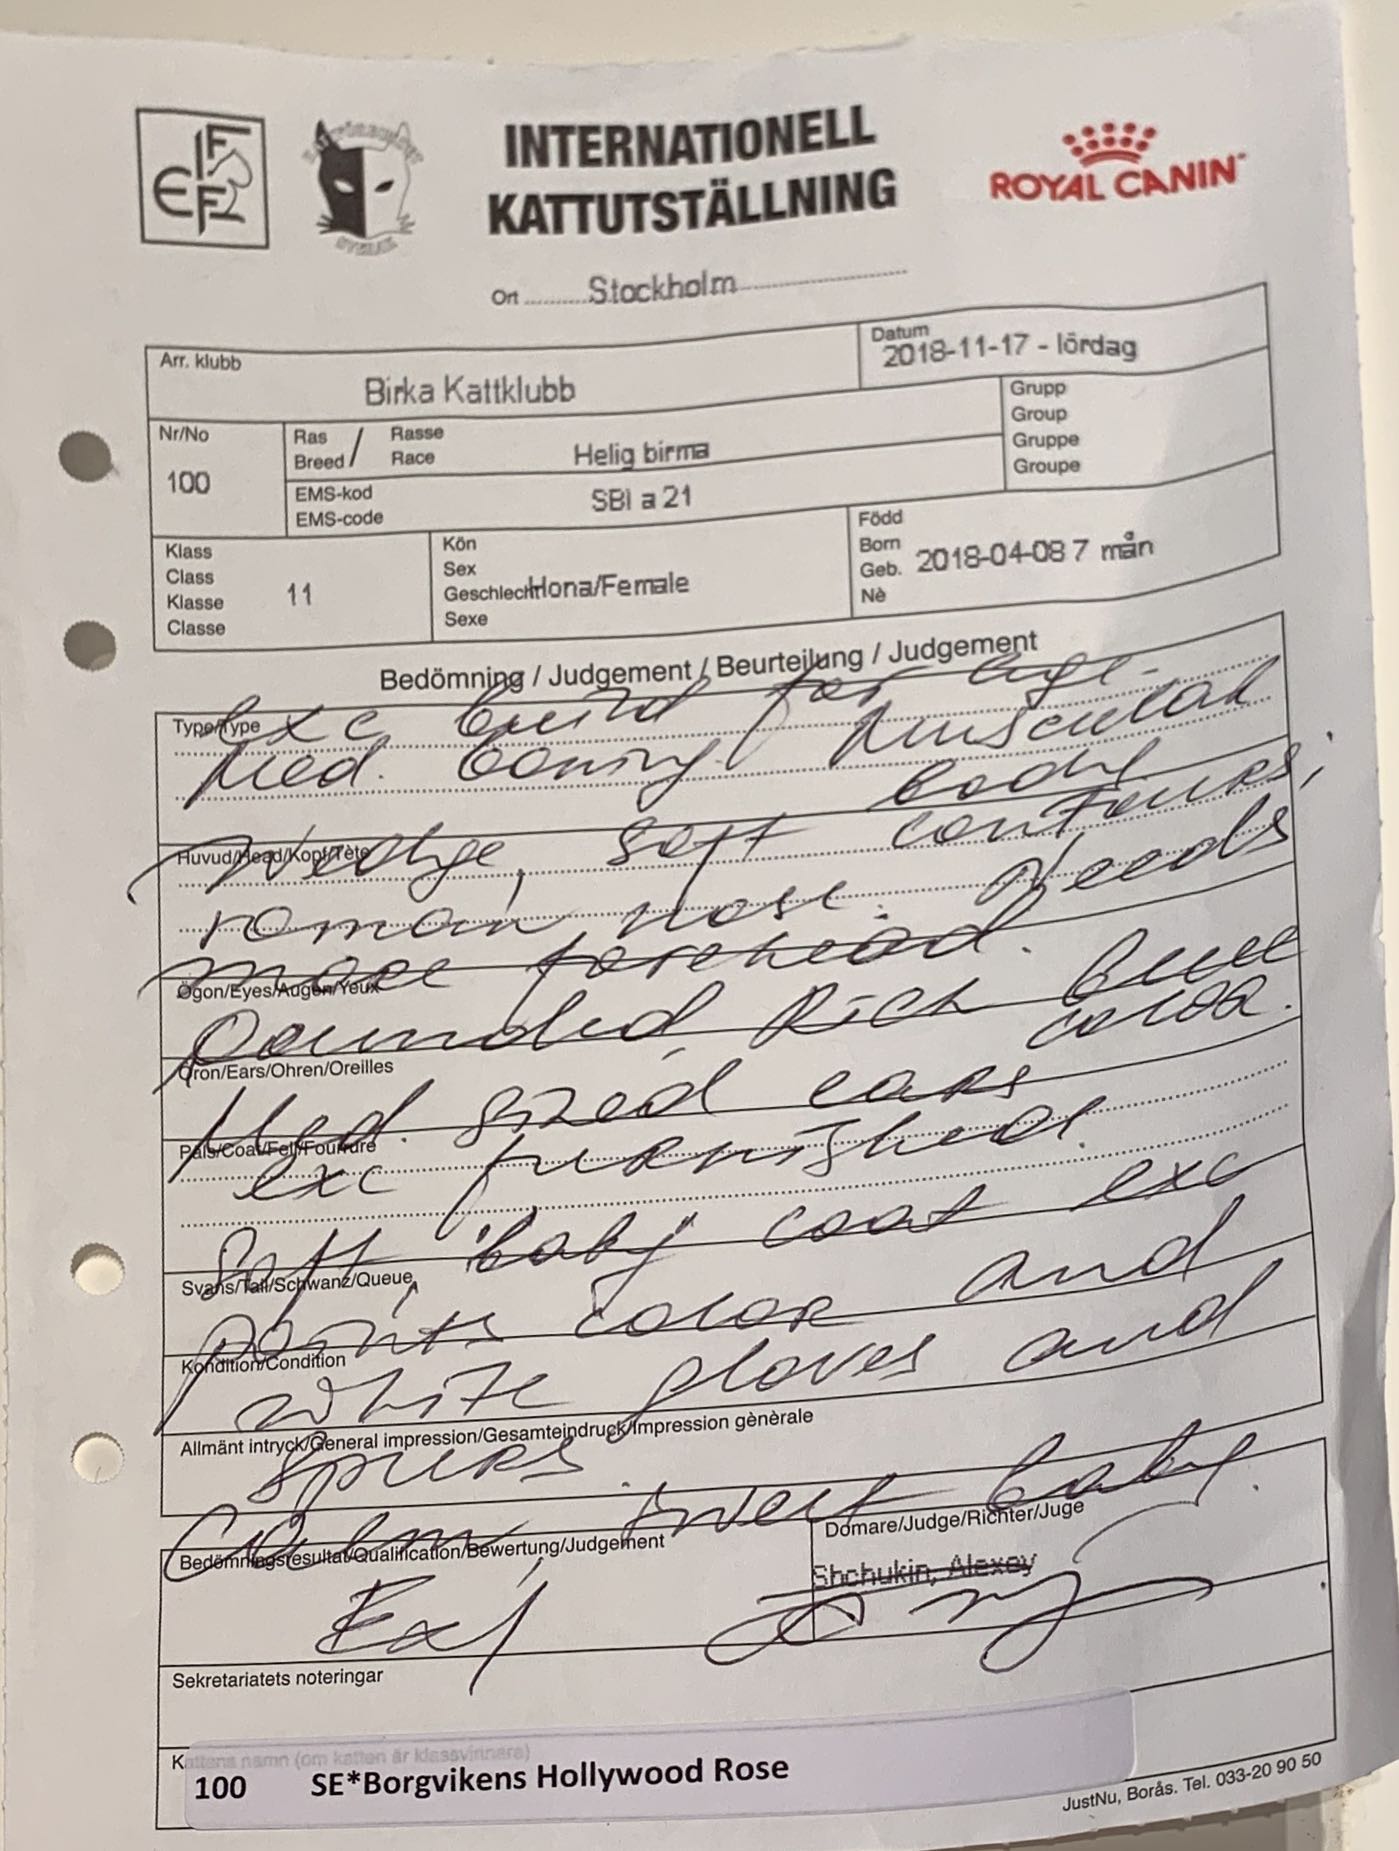 FIFe
INTERNATIONELL
KATTUTSTÄLLNING
ROYAL CANIN
Ort Stockholm
Arr. klubb
Birka Kattklubb
Datum
2018-11-17 - lördag
Nr/No
100
Ras / Rasse
Breed / Race
Helig birma
EMS-kod
EMS-code
SBI a 21
Grupp
Group
Gruppe
Groupe
Klass
Class
Klasse
Classe
11
Kön
Sex
Geschlecht
Sexe
Hona/Female
Född
Born
Geb.
Nè
2018-04-08 7 mån
Bedömning / Judgement / Beurteilung / Judgement
Type/Type
Exc build for age.
Med. boning. Muscular
body
Huvud/Head/Kopf/Tète
Wedge, soft contours,
roman nose. Needs
more forehead.
Ögon/Eyes/Augen/Yeux
Rounded, Rich blue
color.
Öron/Ears/Ohren/Oreilles
Med. sized ears
Päls/Coat/Fell/Fourrure
exc furnished.
Soft "baby" coat exc
Svans/Tail/Schwanz/Queue
points color and
Kondition/Condition
white gloves and
Allmänt intryck/General impression/Gesamteindruck/Impression gènèrale
spurs.
Calm, sweet baby.
Bedömningsresultat/Qualification/Bewertung/Judgement
Ex1
Domare/Judge/Richter/Juge
Shchukin, Alexey
Sekretariatets noteringar
Kattens namn (om katten är klassvinnare)
100 SE*Borgvikens Hollywood Rose
JustNu, Borås. Tel. 033-20 90 50